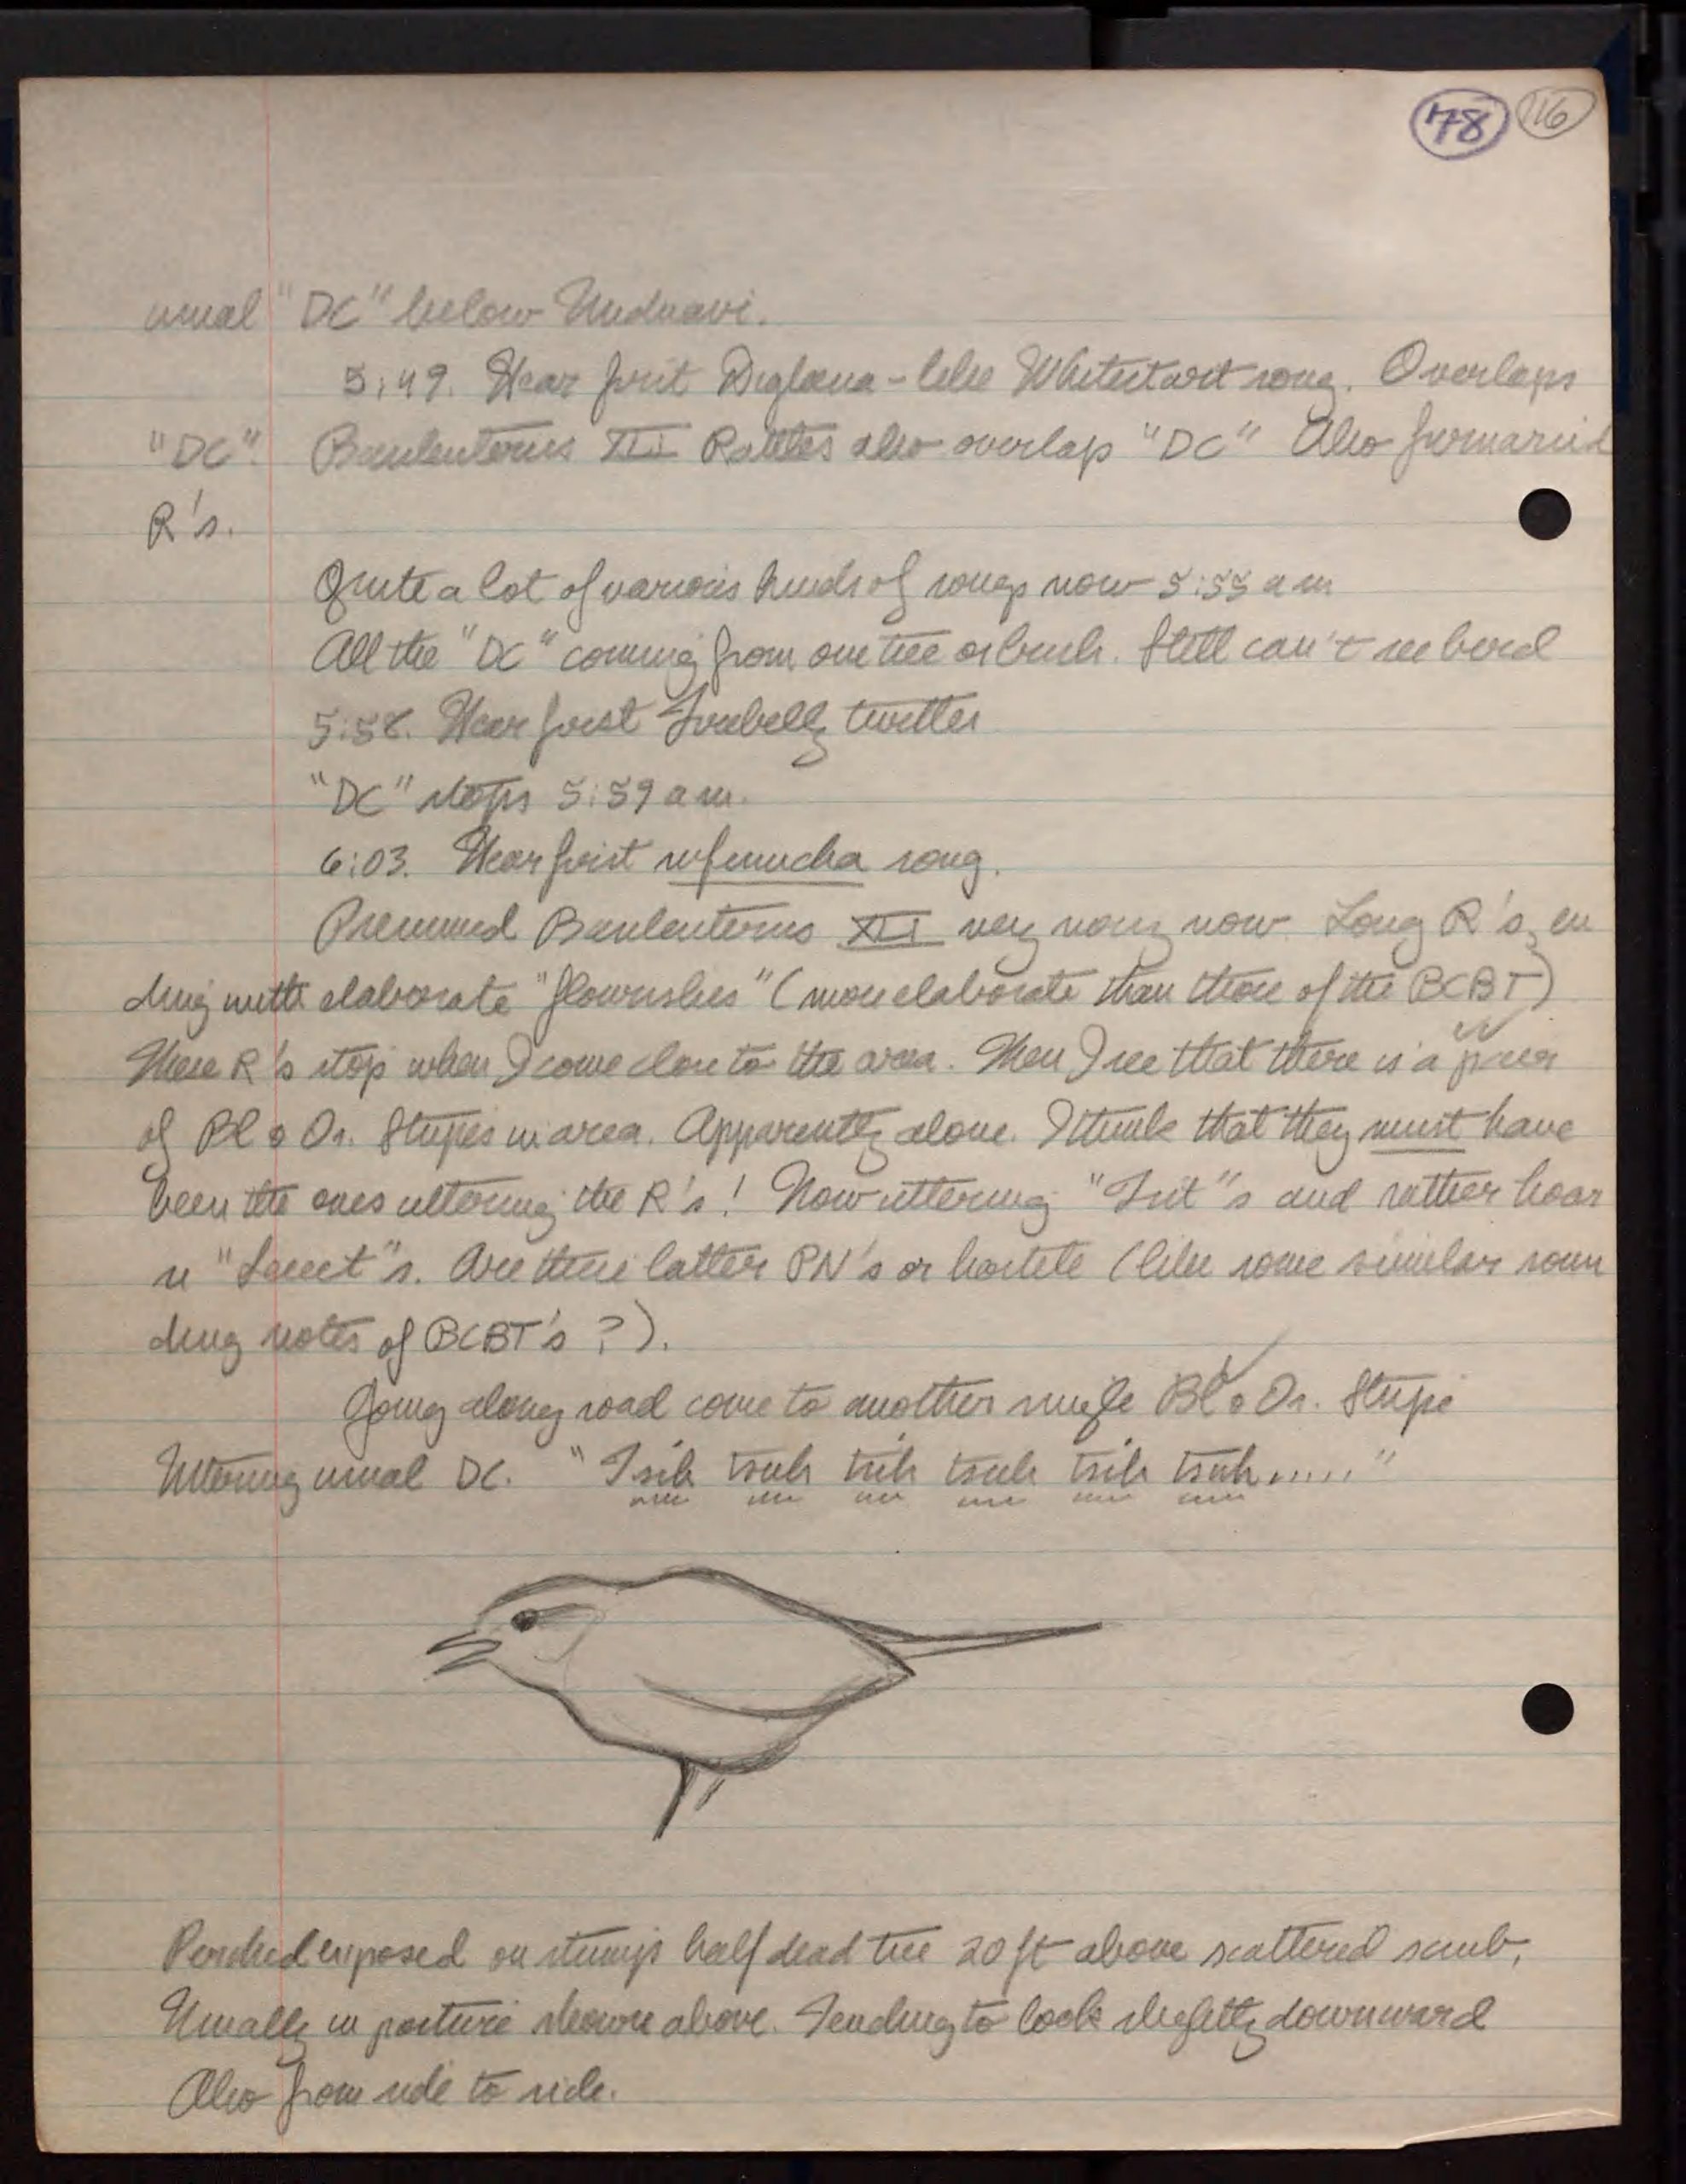 78 116
usual "DC" below Unduavi.
5:49. Hear first Diglossa-like Whitestart song. Overlaps
"DC". Basileuterus XII Rattles also overlap "DC" Also furnariid
R's.
Quite a lot of various kinds of songs now 5:55 am
All the "DC" coming from one tree or bush. Still can't see bird
5:58. Hear first Firebelly twitter
"DC" stops 5:59 am.
6:03. Hear first rufinucha song.
Presumed Basileuterus XII very noisy now. Long R's, en
ding with elaborate "flourishes" (more elaborate than those of the BCBT)
These R's stop when I come close to the area. Then I see that there is a pair
of Bl o Or. Stripes in area. Apparently alone. I think that they must have
been the ones uttering the R's! Now uttering "Tsit"s and rather hoar
se "s. Are these latter PN's or hostile (like some similar soun
ding notes of BCBT's ?).
Going along road come to another single Bl o Or. Stripe
Uttering usual DC. "Tsih tsuh tsih tsuh tsih tsuh....."
Perched exposed on stump half dead tree 20 ft above scattered scrub.
Usually in posture shown above. Tending to look slightly downward
Also from side to side.